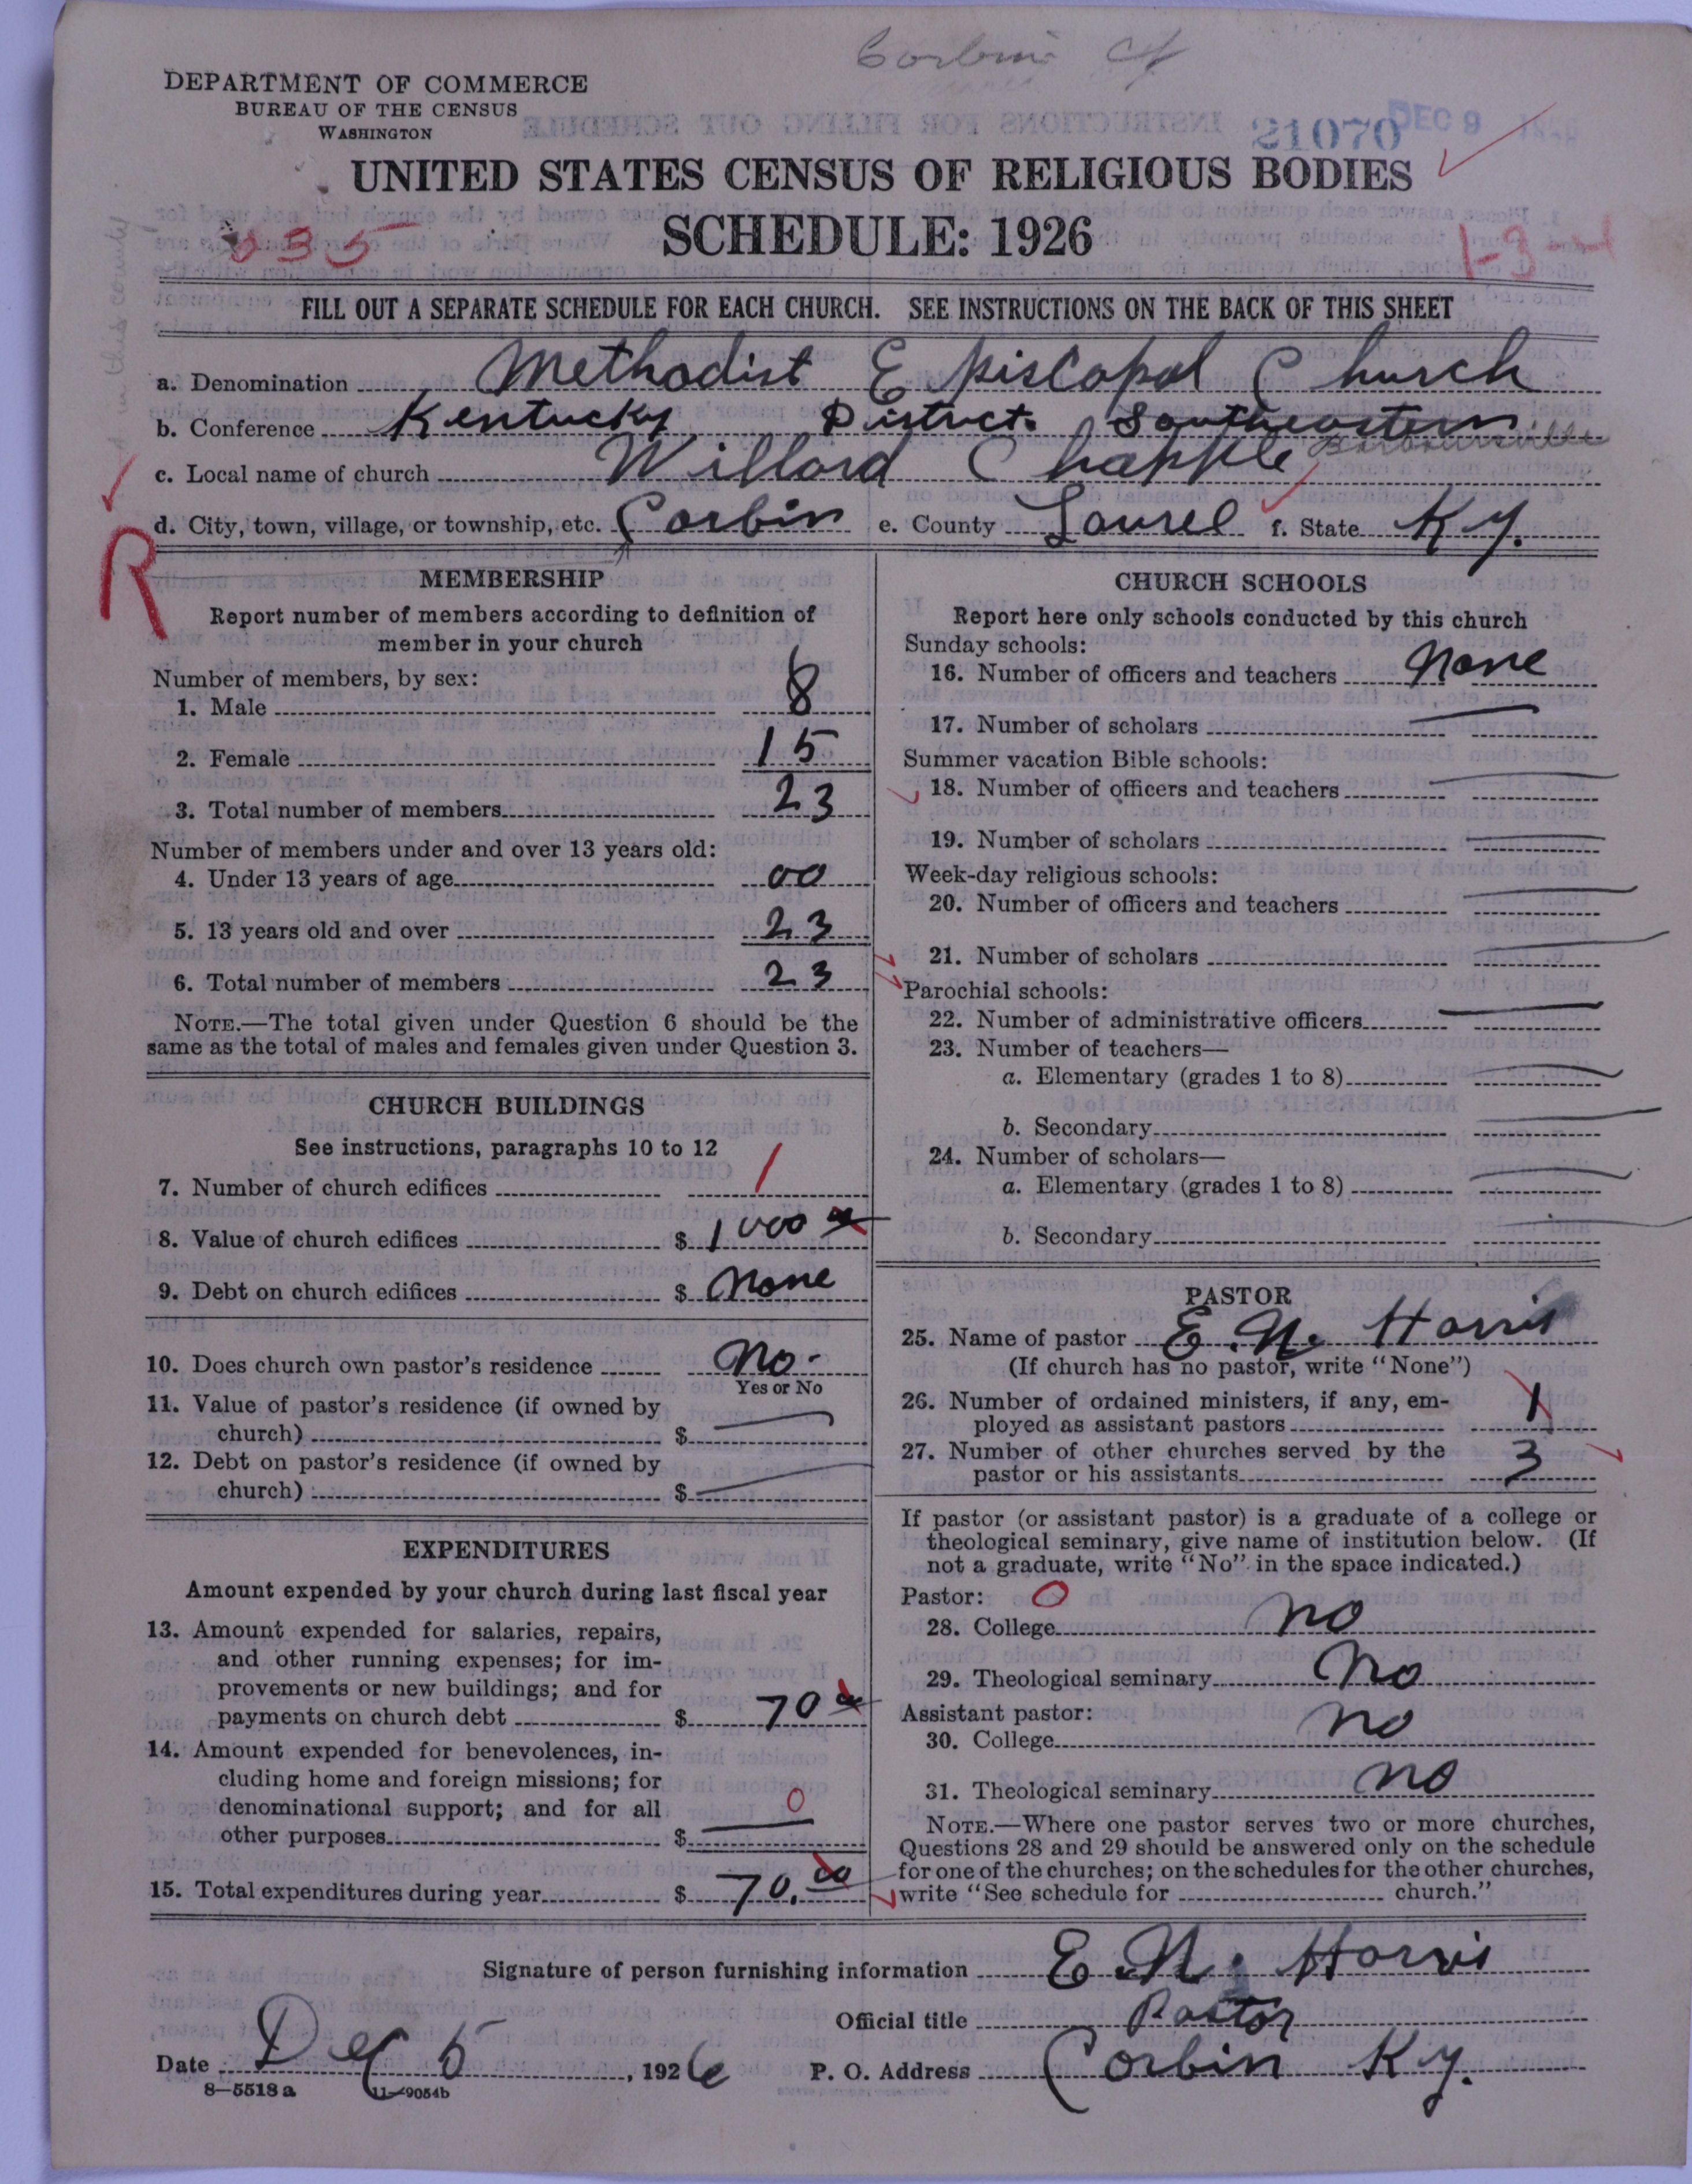 Corbin Ct
DEPARTMENT OF COMMERCE
BUREAU OF THE CENSUS
WASHINGTON
21070
DEC 9
UNITED STATES CENSUS OF RELIGIOUS BODIES
SCHEDULE: 1926
035
1-3
FILL OUT A SEPARATE SCHEDULE FOR EACH CHURCH. SEE INSTRUCTIONS ON THE BACK OF THIS SHEET
a. Denomination Methodist Episcopal Church
b. Conference Kentucky District. Southeastern
Barbourville
c. Local name of church Willard Chapple
d. City, town, village, or township, etc. Corbin e. County Laurel f. State Ky.
R
MEMBERSHIP
Report number of members according to definition of
member in your church
Number of members, by sex:
1. Male 8
2. Female 15
3. Total number of members 23
Number of members under and over 13 years old:
4. Under 13 years of age 00
5. 13 years old and over 23
6. Total number of members 23
NOTE.—The total given under Question 6 should be the
same as the total of males and females given under Question 3.
CHURCH BUILDINGS
See instructions, paragraphs 10 to 12
7. Number of church edifices 1
8. Value of church edifices $ 1000 00
9. Debt on church edifices $ None
10. Does church own pastor's residence No.
Yes or No
11. Value of pastor's residence (if owned by
church) $
12. Debt on pastor's residence (if owned by
church) $
EXPENDITURES
Amount expended by your church during last fiscal year
13. Amount expended for salaries, repairs,
and other running expenses; for im-
provements or new buildings; and for
payments on church debt $ 70 00
14. Amount expended for benevolences, in-
cluding home and foreign missions; for
denominational support; and for all
other purposes $ 0
15. Total expenditures during year $ 70.00
CHURCH SCHOOLS
Report here only schools conducted by this church
Sunday schools:
16. Number of officers and teachers None
17. Number of scholars
Summer vacation Bible schools:
18. Number of officers and teachers
19. Number of scholars
Week-day religious schools:
20. Number of officers and teachers
21. Number of scholars
Parochial schools:
22. Number of administrative officers
23. Number of teachers—
a. Elementary (grades 1 to 8)
b. Secondary
24. Number of scholars—
a. Elementary (grades 1 to 8)
b. Secondary
PASTOR
25. Name of pastor E. N. Harris
(If church has no pastor, write "None")
26. Number of ordained ministers, if any, em-
ployed as assistant pastors 1
27. Number of other churches served by the
pastor or his assistants 3
If pastor (or assistant pastor) is a graduate of a college or
theological seminary, give name of institution below. (If
not a graduate, write "No" in the space indicated.)
Pastor: 0
28. College no
29. Theological seminary No
Assistant pastor:
30. College no
31. Theological seminary no
NOTE.—Where one pastor serves two or more churches,
Questions 28 and 29 should be answered only on the schedule
for one of the churches; on the schedules for the other churches,
write "See schedule for church."
Signature of person furnishing information E. N. Harris
Official title Pastor
Date Dec 5, 1926 P. O. Address Corbin Ky.
8—5518 a 11—9054b